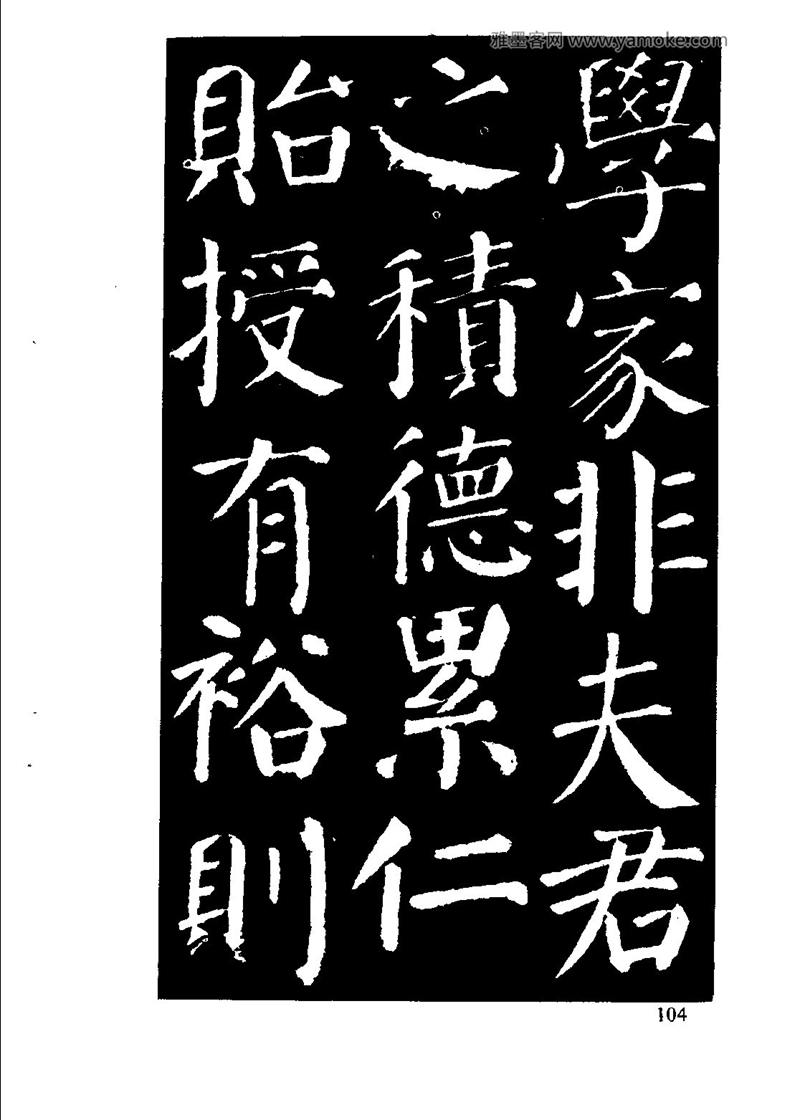 雅墨客网 www.yamoke.com
學家非夫君
之積德累仁
貽授有裕則
104